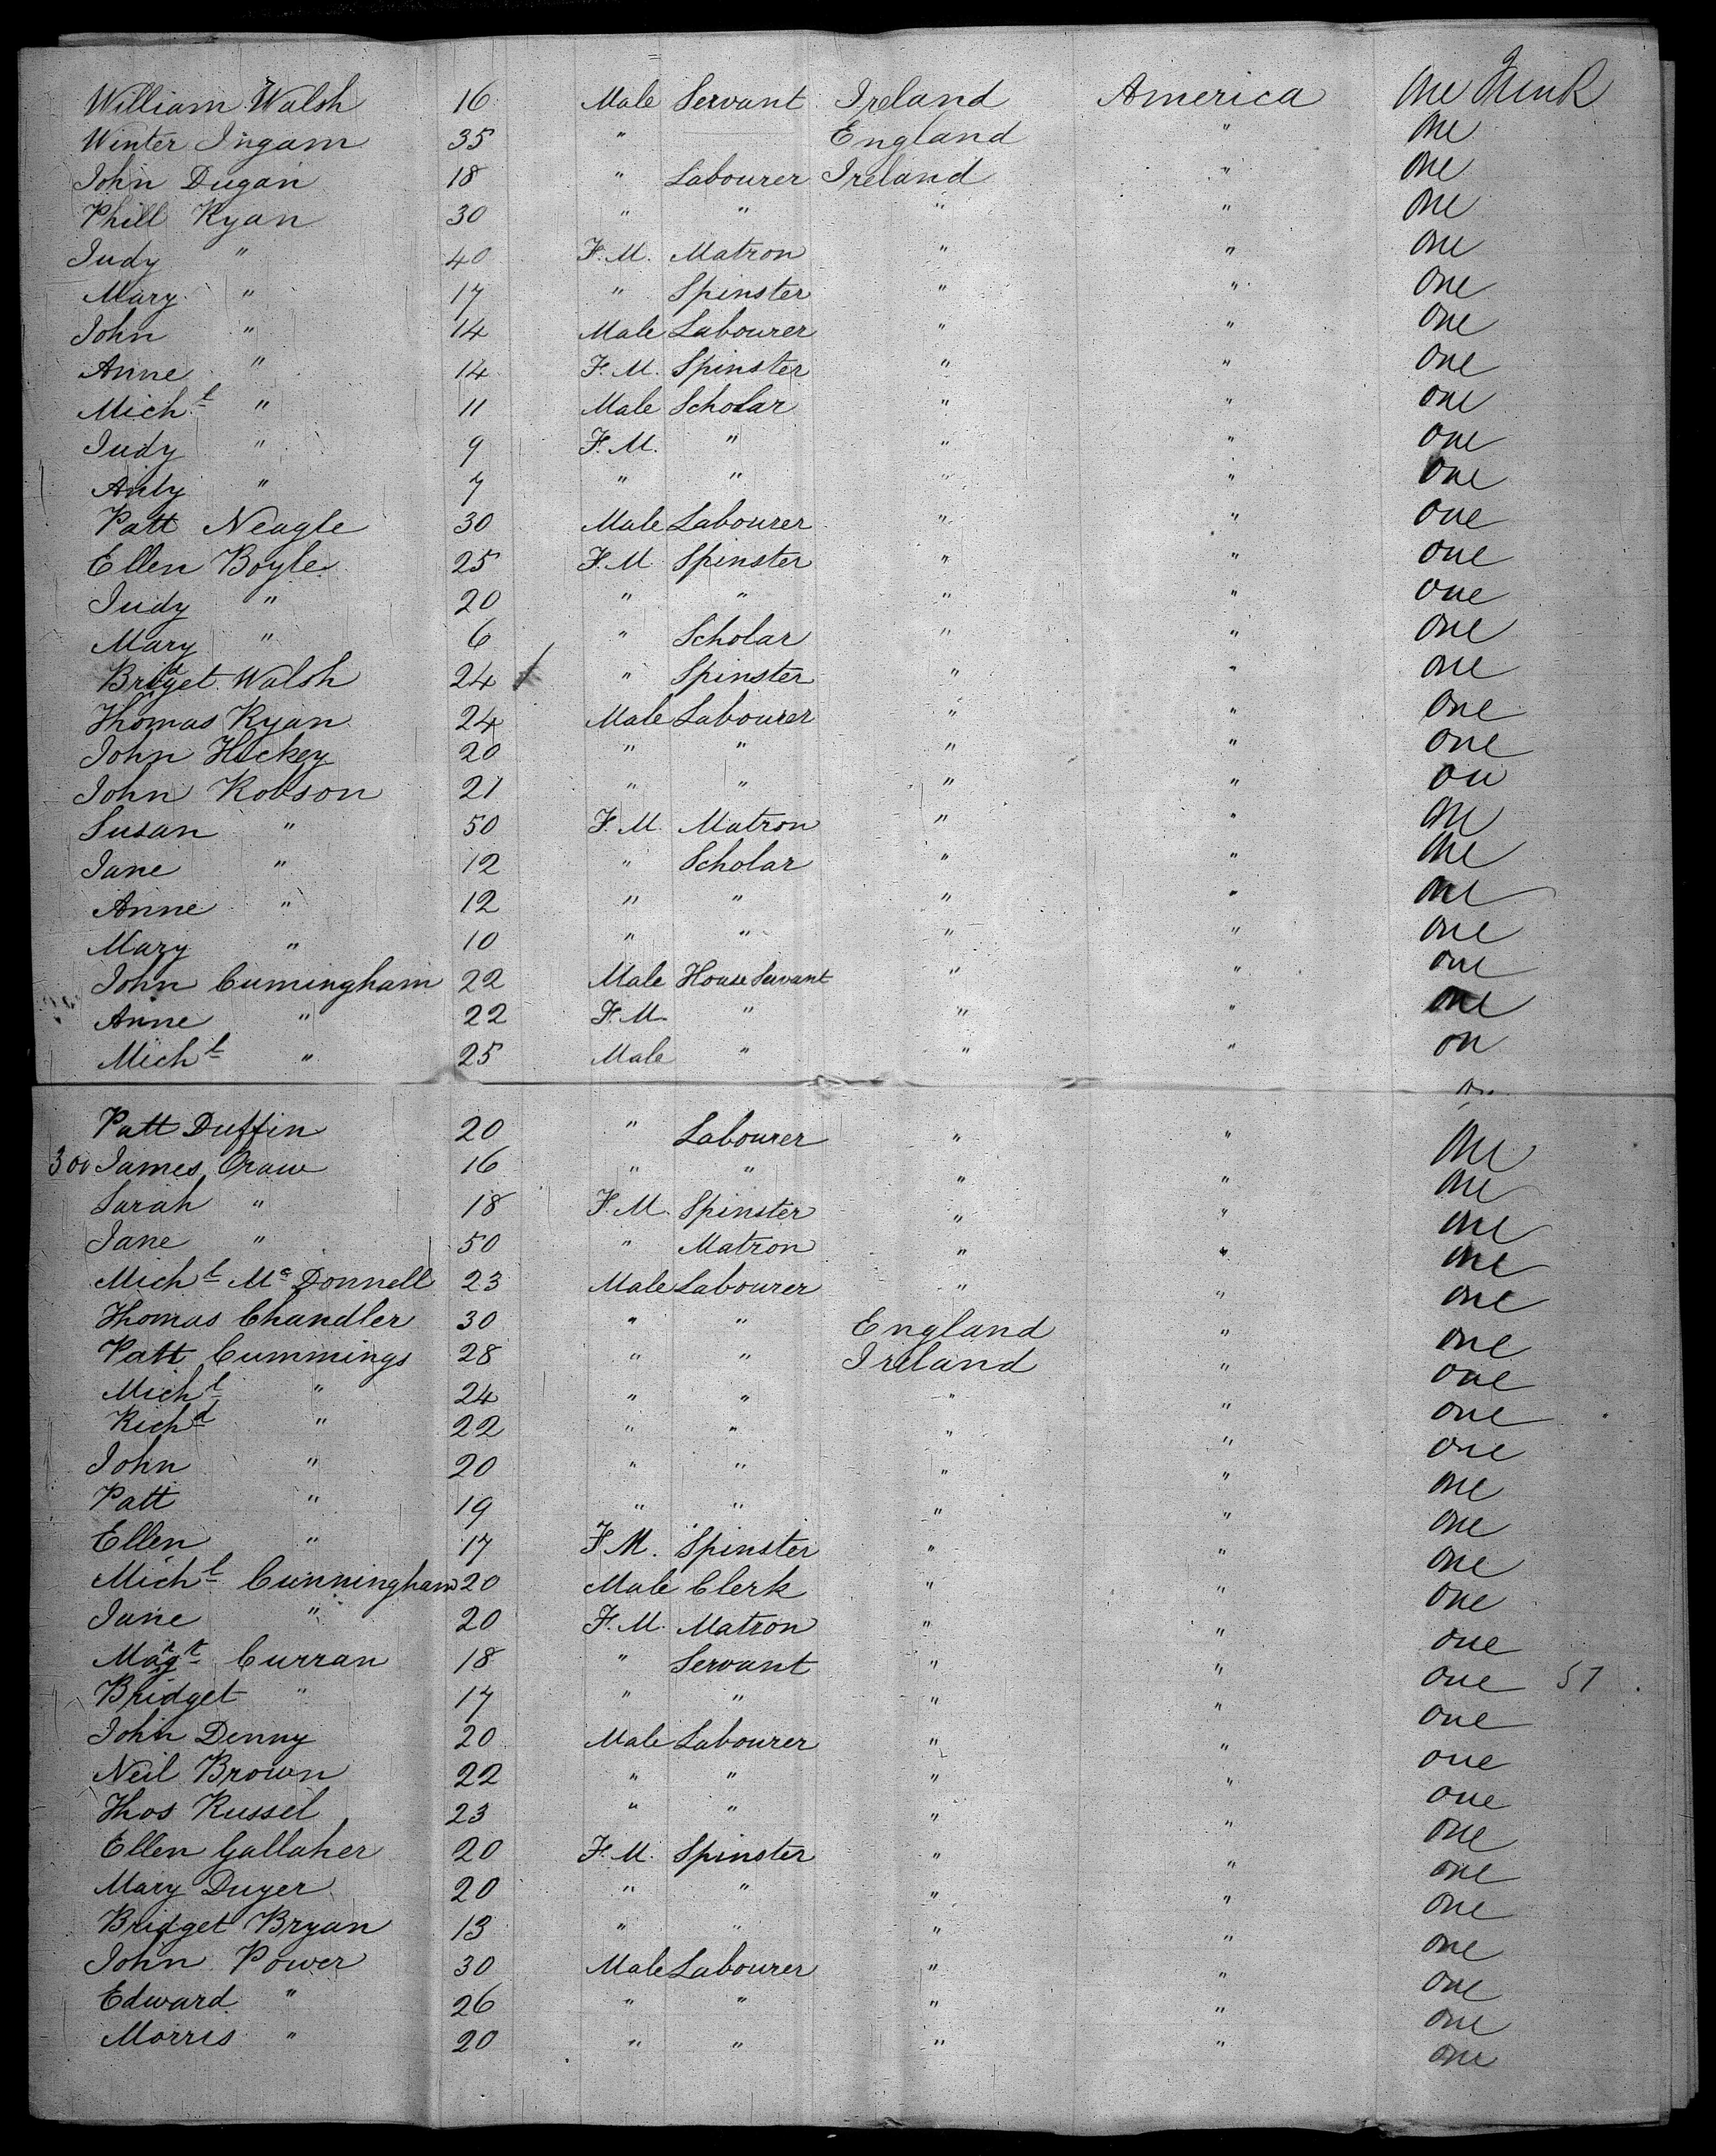 William Walsh 16 Male Servant Ireland America One Trunk
Winter Ingam 35 " England " One
John Dugan 18 " Labourer Ireland " One
Phill Ryan 30 " " " " One
Judy " 40 F.M. Matron " " One
Mary " 17 " Spinster " " One
John " 14 Male Labourer " " One
Anne " 14 F.M. Spinster " " One
Michl " 11 Male Scholar " " One
Judy " 9 F.M. " " " One
Anty " 7 " " " " One
Patt Neagle 30 Male Labourer " " One
Ellen Boyle 25 F.M. Spinster " " One
Judy " 20 " " " " One
Mary " 6 " Scholar " " One
Bridget Walsh 24 " Spinster " " One
Thomas Ryan 24 Male Labourer " " One
John Hickey 20 " " " " One
John Robson 21 " " " " On
Susan " 50 F.M. Matron " " One
Jane " 12 " Scholar " " One
Anne " 12 " " " " One
Mary " 10 " " " " One
John Cumingham 22 Male House Servant " " One
Anne " 22 F.M. " " " One
Michl " 25 Male " " " On
On
Patt Duffin 20 " Labourer " " One
300 James Craw 16 " " " " One
Sarah " 18 F.M. Spinster " " One
Jane " 50 " Matron " " One
Michl McDonnell 23 Male Labourer " " One
Thomas Chandler 30 " " England " One
Patt Cummings 28 " " Ireland " One
Michl " 24 " " " " One
Richd " 22 " " " " One
John " 20 " " " " One
Patt " 19 " " " " One
Ellen " 17 F.M. Spinster " " One
Michl Cunningham 20 Male Clerk " " One
Jane " 20 F.M. Matron " " One
Magt Curran 18 " Servant " " One 57
Bridget " 17 " " " " One
John Denny 20 Male Labourer " " One
Neil Brown 22 " " " " One
Thos Russel 23 " " " " One
Ellen Gallaher 20 F.M. Spinster " " One
Mary Duyer 20 " " " " One
Bridget Bryan 13 " " " " One
John Power 30 Male Labourer " " One
Edward " 26 " " " " One
Morris " 20 " " " " One